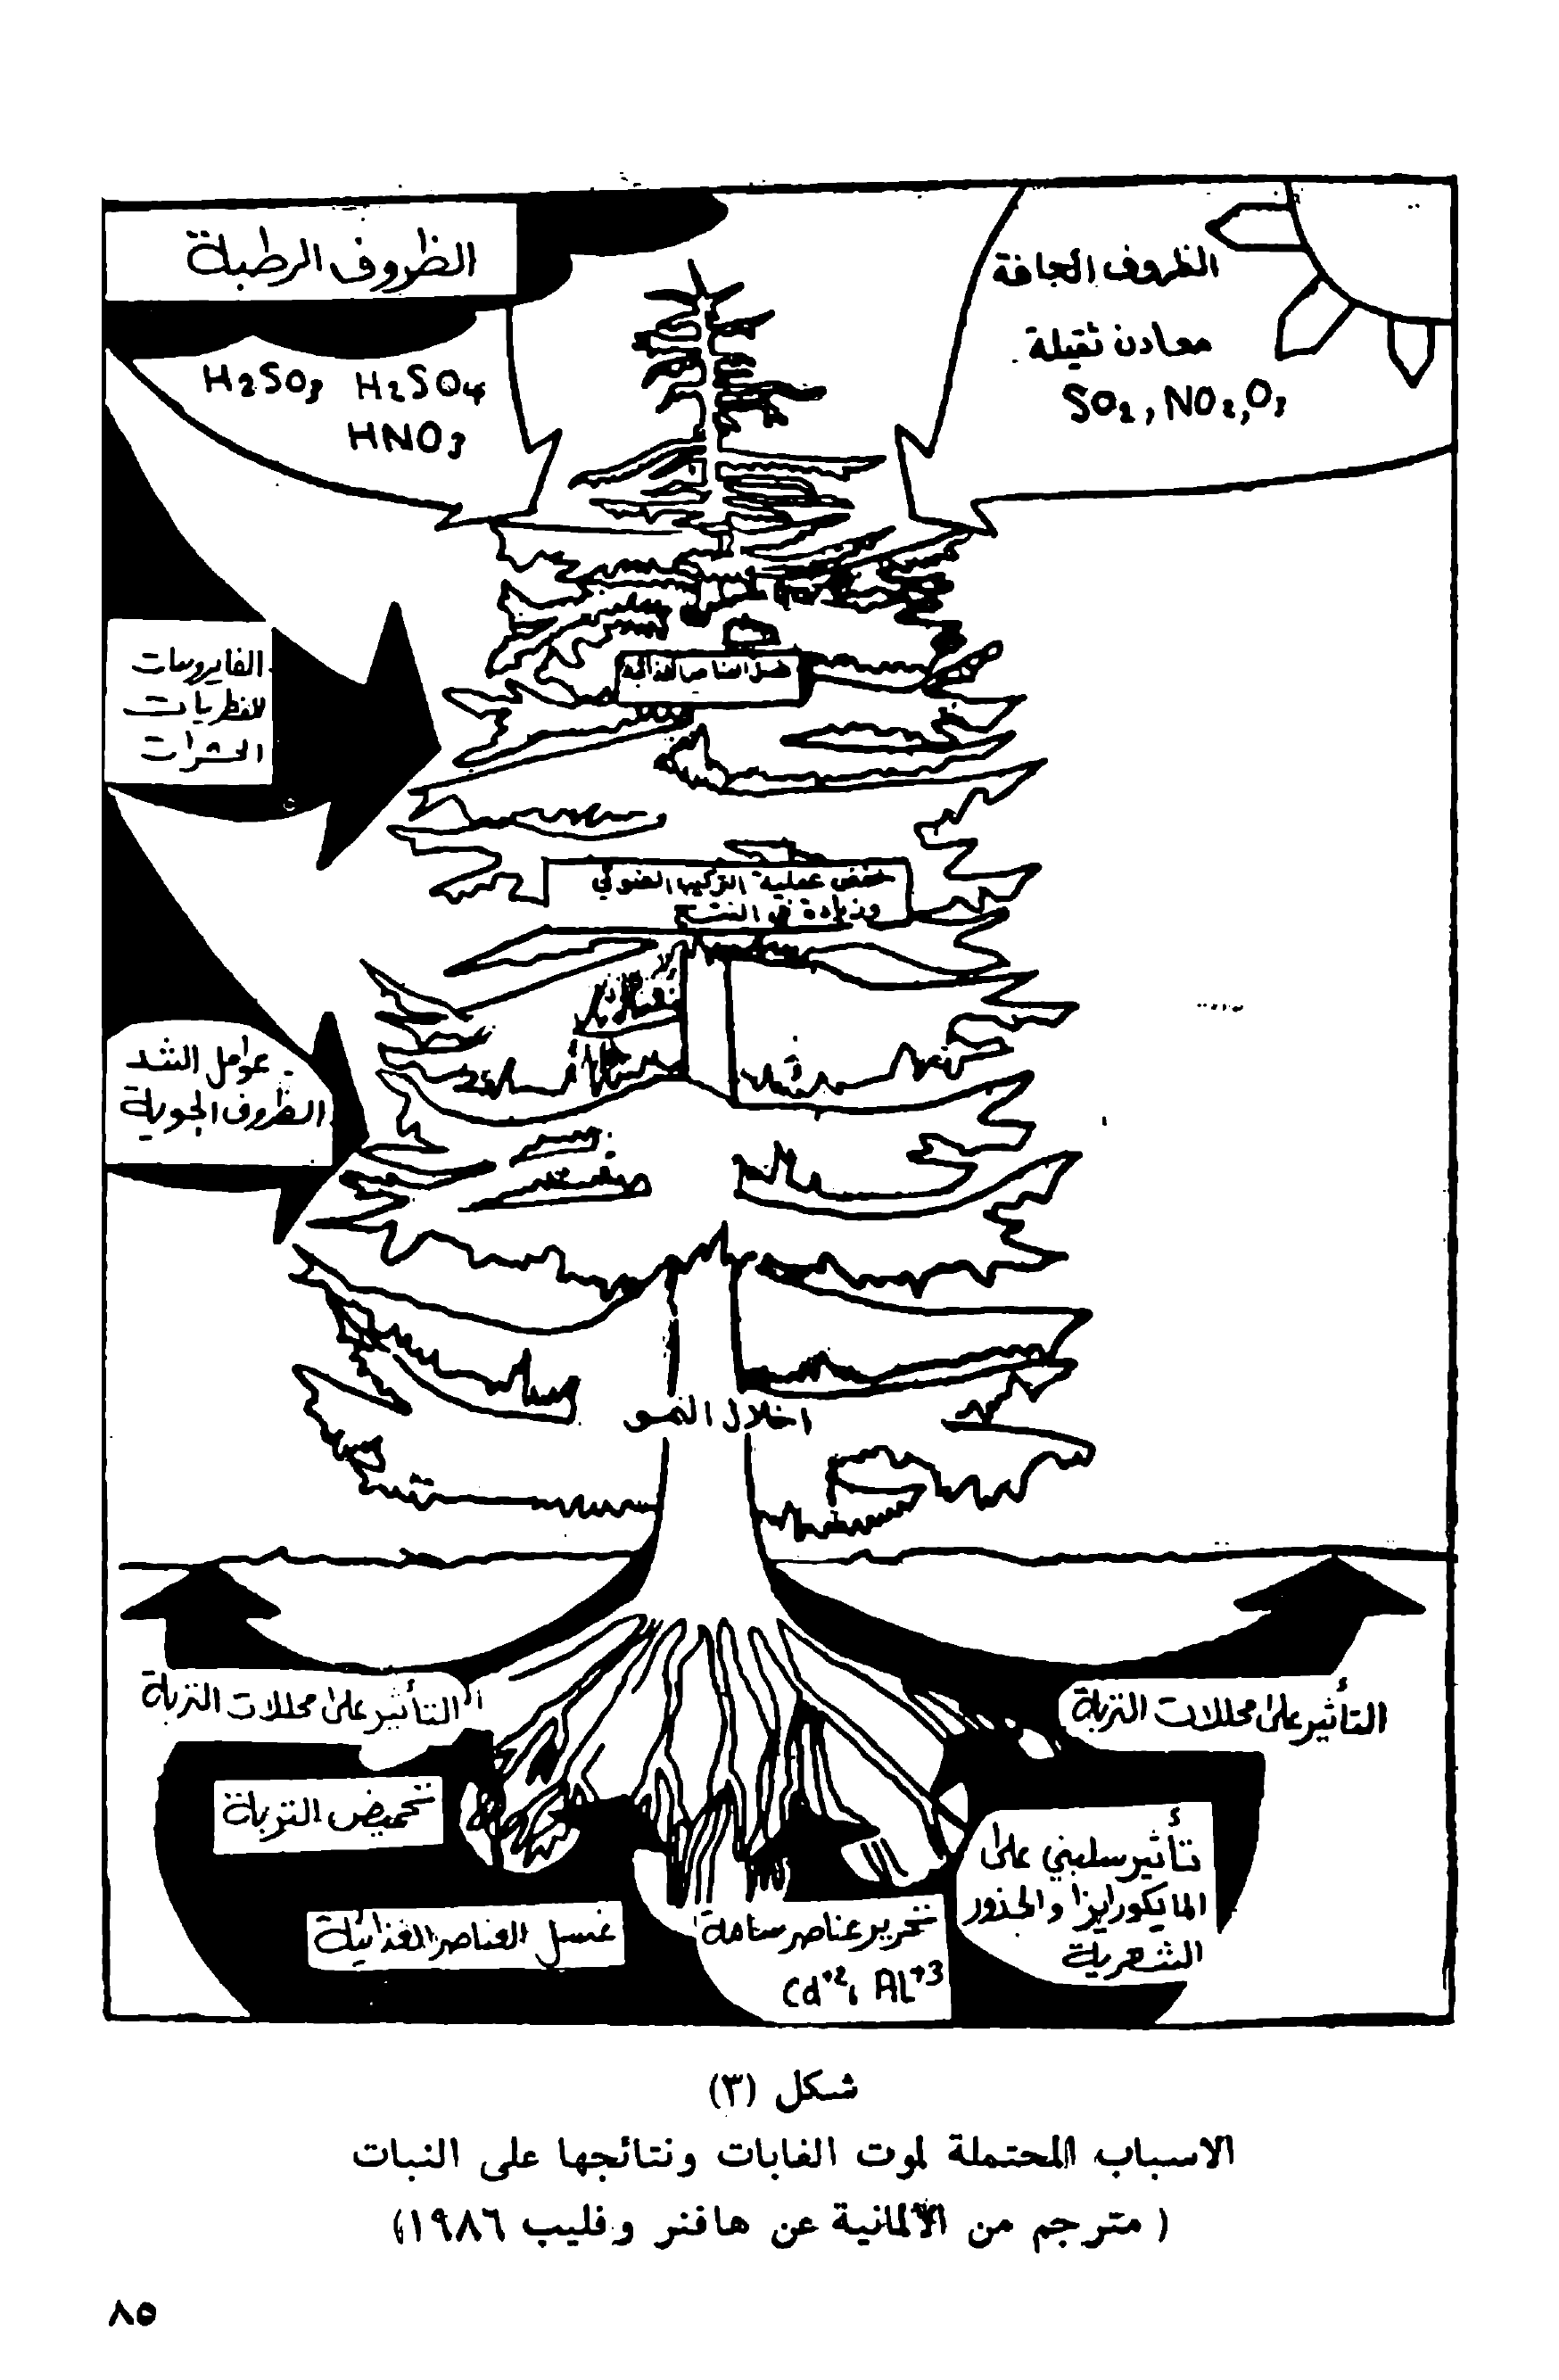 الظروف الرطبة
H₂SO₃ H₂SO₄
HNO₃
الظروف الجافة
معادن ثقيلة
SO₂, NO₂, O₃
الفايروسات
الفطريات
الحشرات
غسل العناصر الغذائية
خفض عملية التركيب الضوئي
وزيادة في النتح
عوامل الشد
الظروف الجوية
اخلال النمو
التأثير على محللات التربة
التأثير على محللات التربة
تحميض التربة
تأثير سلبي على
المايكورايزا والجذور
الشعرية
غسل العناصر الغذائية
تحرير عناصر سامة
Cd⁺²، AL⁺³
شكل (٣)
الاسباب المحتملة لموت الغابات ونتائجها على النبات
(مترجم من الألمانية عن هافنر وفليب ١٩٨٦)
٨٥